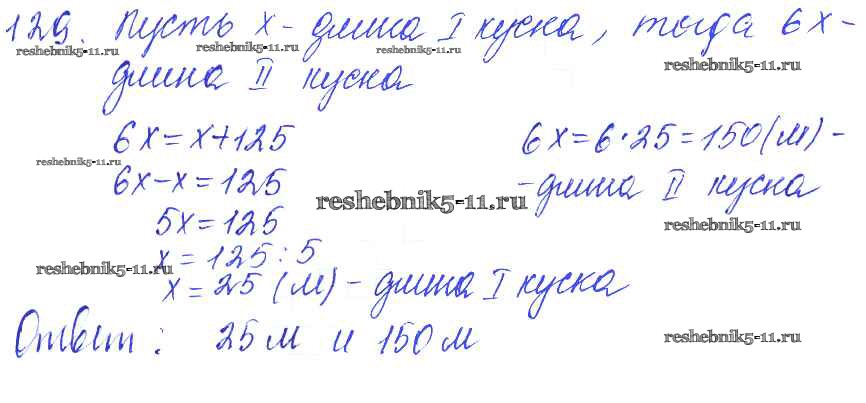 129. Пусть x - длина I куска, тогда 6x -
reshebnik5-11.ru reshebnik5-11.ru reshebnik5-11.ru reshebnik5-11.ru
длина II куска
6x = x+125 6x = 6·25 = 150 (м) -
reshebnik5-11.ru
6x-x = 125 - длина II куска
reshebnik5-11.ru
5x = 125 reshebnik5-11.ru
x = 125 : 5
reshebnik5-11.ru
x = 25 (м) - длина I куска
Ответ: 25 м и 150 м reshebnik5-11.ru